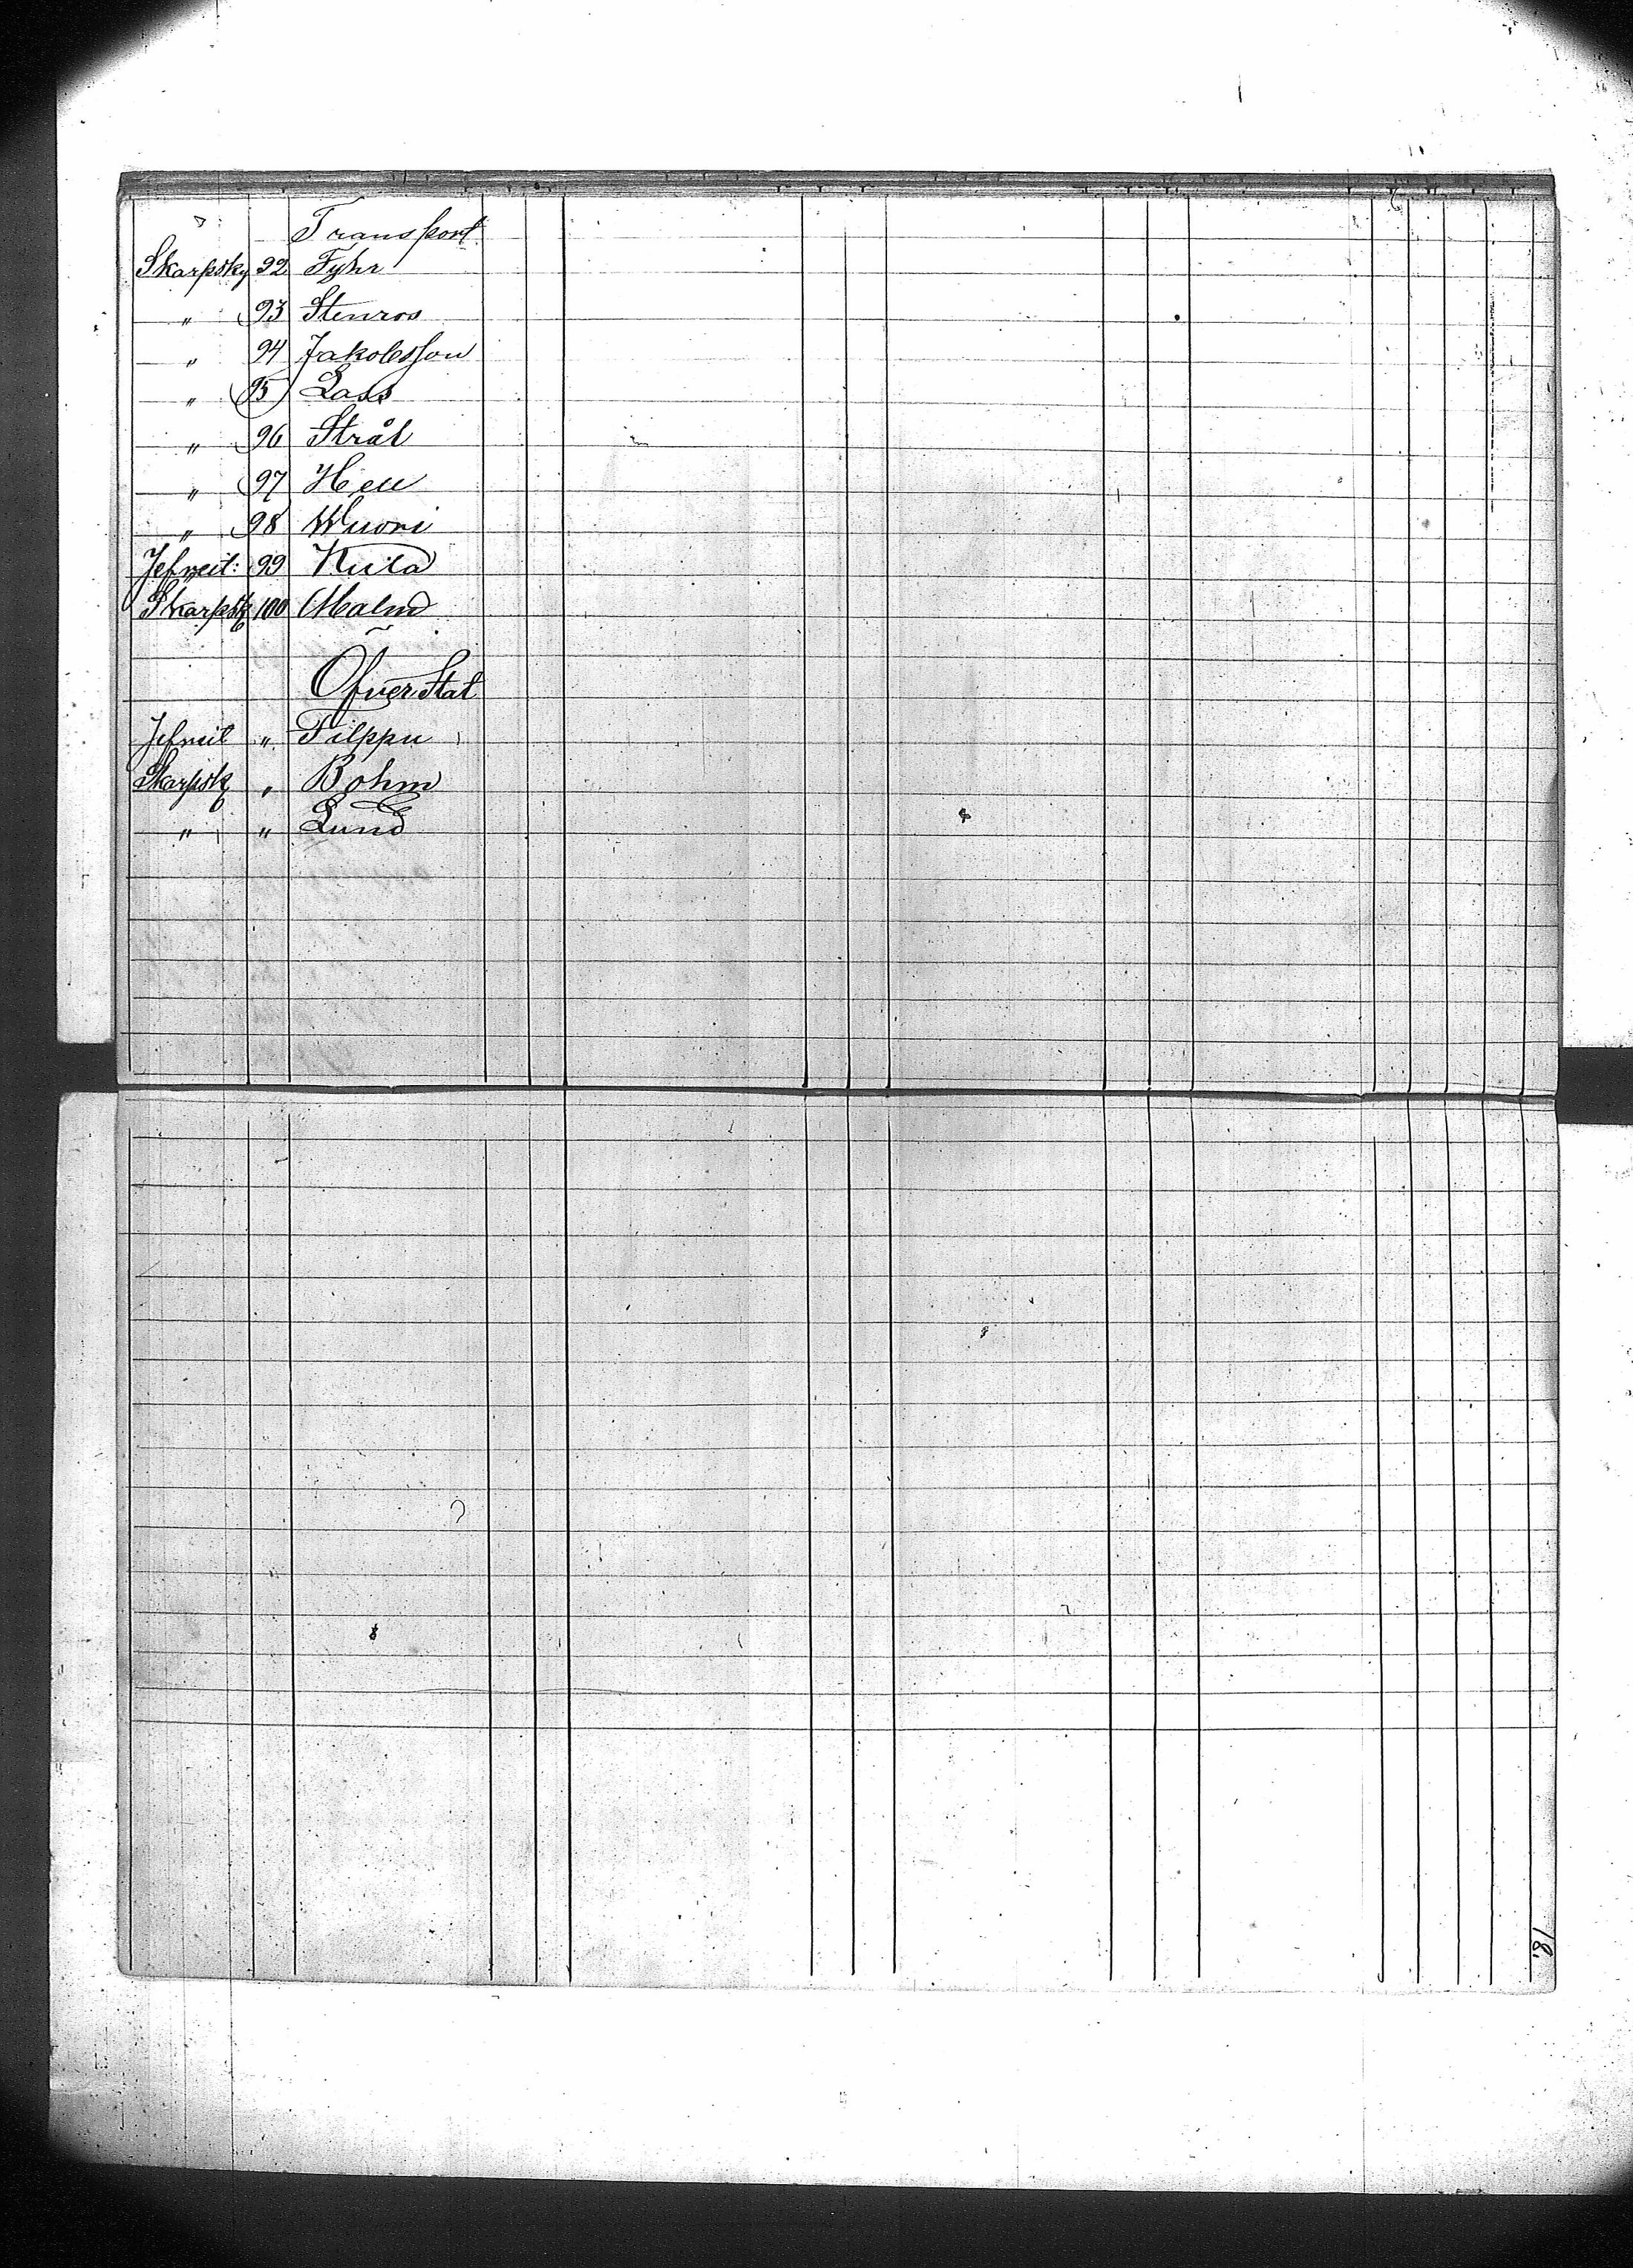 Transport
Skarpsky 92 Fyhr
" 93 Stenros
" 94 Jakobsson
" 95 Lass
" 96 Strål
" 97 Hell
" 98 Wuori
Jefreit: 99 Kuila
Skarpsk 100 Malm
ÖfverStat
Jefreit " Filppu
Skarpsk " Bohm
" " Lund
18.